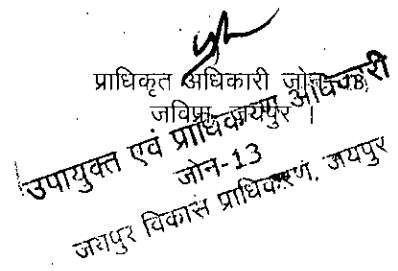 प्राधिकृत अधिकारी जोन-13
जविप्रा, जयपुर ।
उपायुक्त एवं प्राधिकरण अधिकारी
जोन-13
जयपुर विकास प्राधिकरण, जयपुर